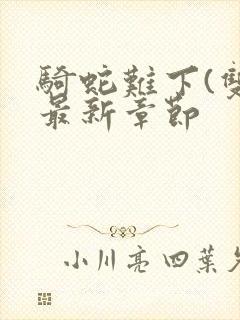 騎蛇難下(雙
最新章節
小川亮四葉久